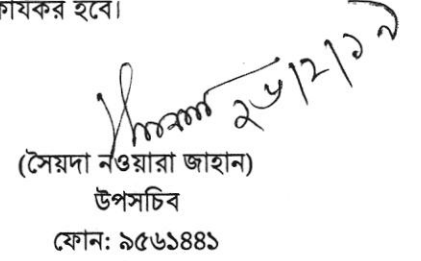 কার্যকর হবে।
২৬/২/১৯
(সৈয়দা নওয়ারা জাহান)
উপসচিব
ফোন: ৯৫৬১৪৪১